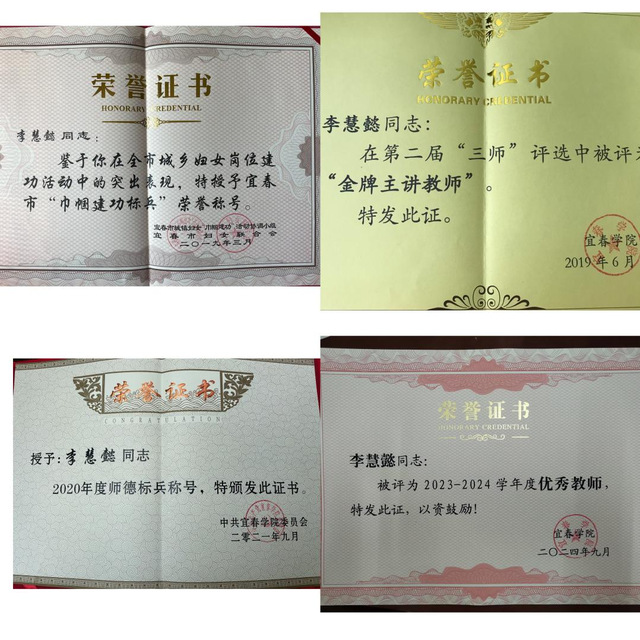 荣誉证书
HONORARY CREDENTIAL
李慧懿 同志：
鉴于你在全市城乡妇女岗位建
功活动中的突出表现，特授予宜春
市“巾帼建功标兵”荣誉称号。
宜春市城镇妇女“巾帼建功”活动协调小组
宜春市妇女联合会
二〇一九年三月
荣誉证书
HONORARY CREDENTIAL
李慧懿同志：
在第二届“三师”评选中被评为
“金牌主讲教师”。
特发此证。
宜春学院
2019年6月
荣誉证书
CONGRATULATION
授予：李慧懿 同志
2020年度师德标兵称号，特颁发此证书。
中共宜春学院委员会
二〇二一年九月
荣誉证书
HONORARY CREDENTIAL
李慧懿同志：
被评为2023-2024学年度优秀教师，
特发此证，以资鼓励！
宜春学院
二〇二四年九月